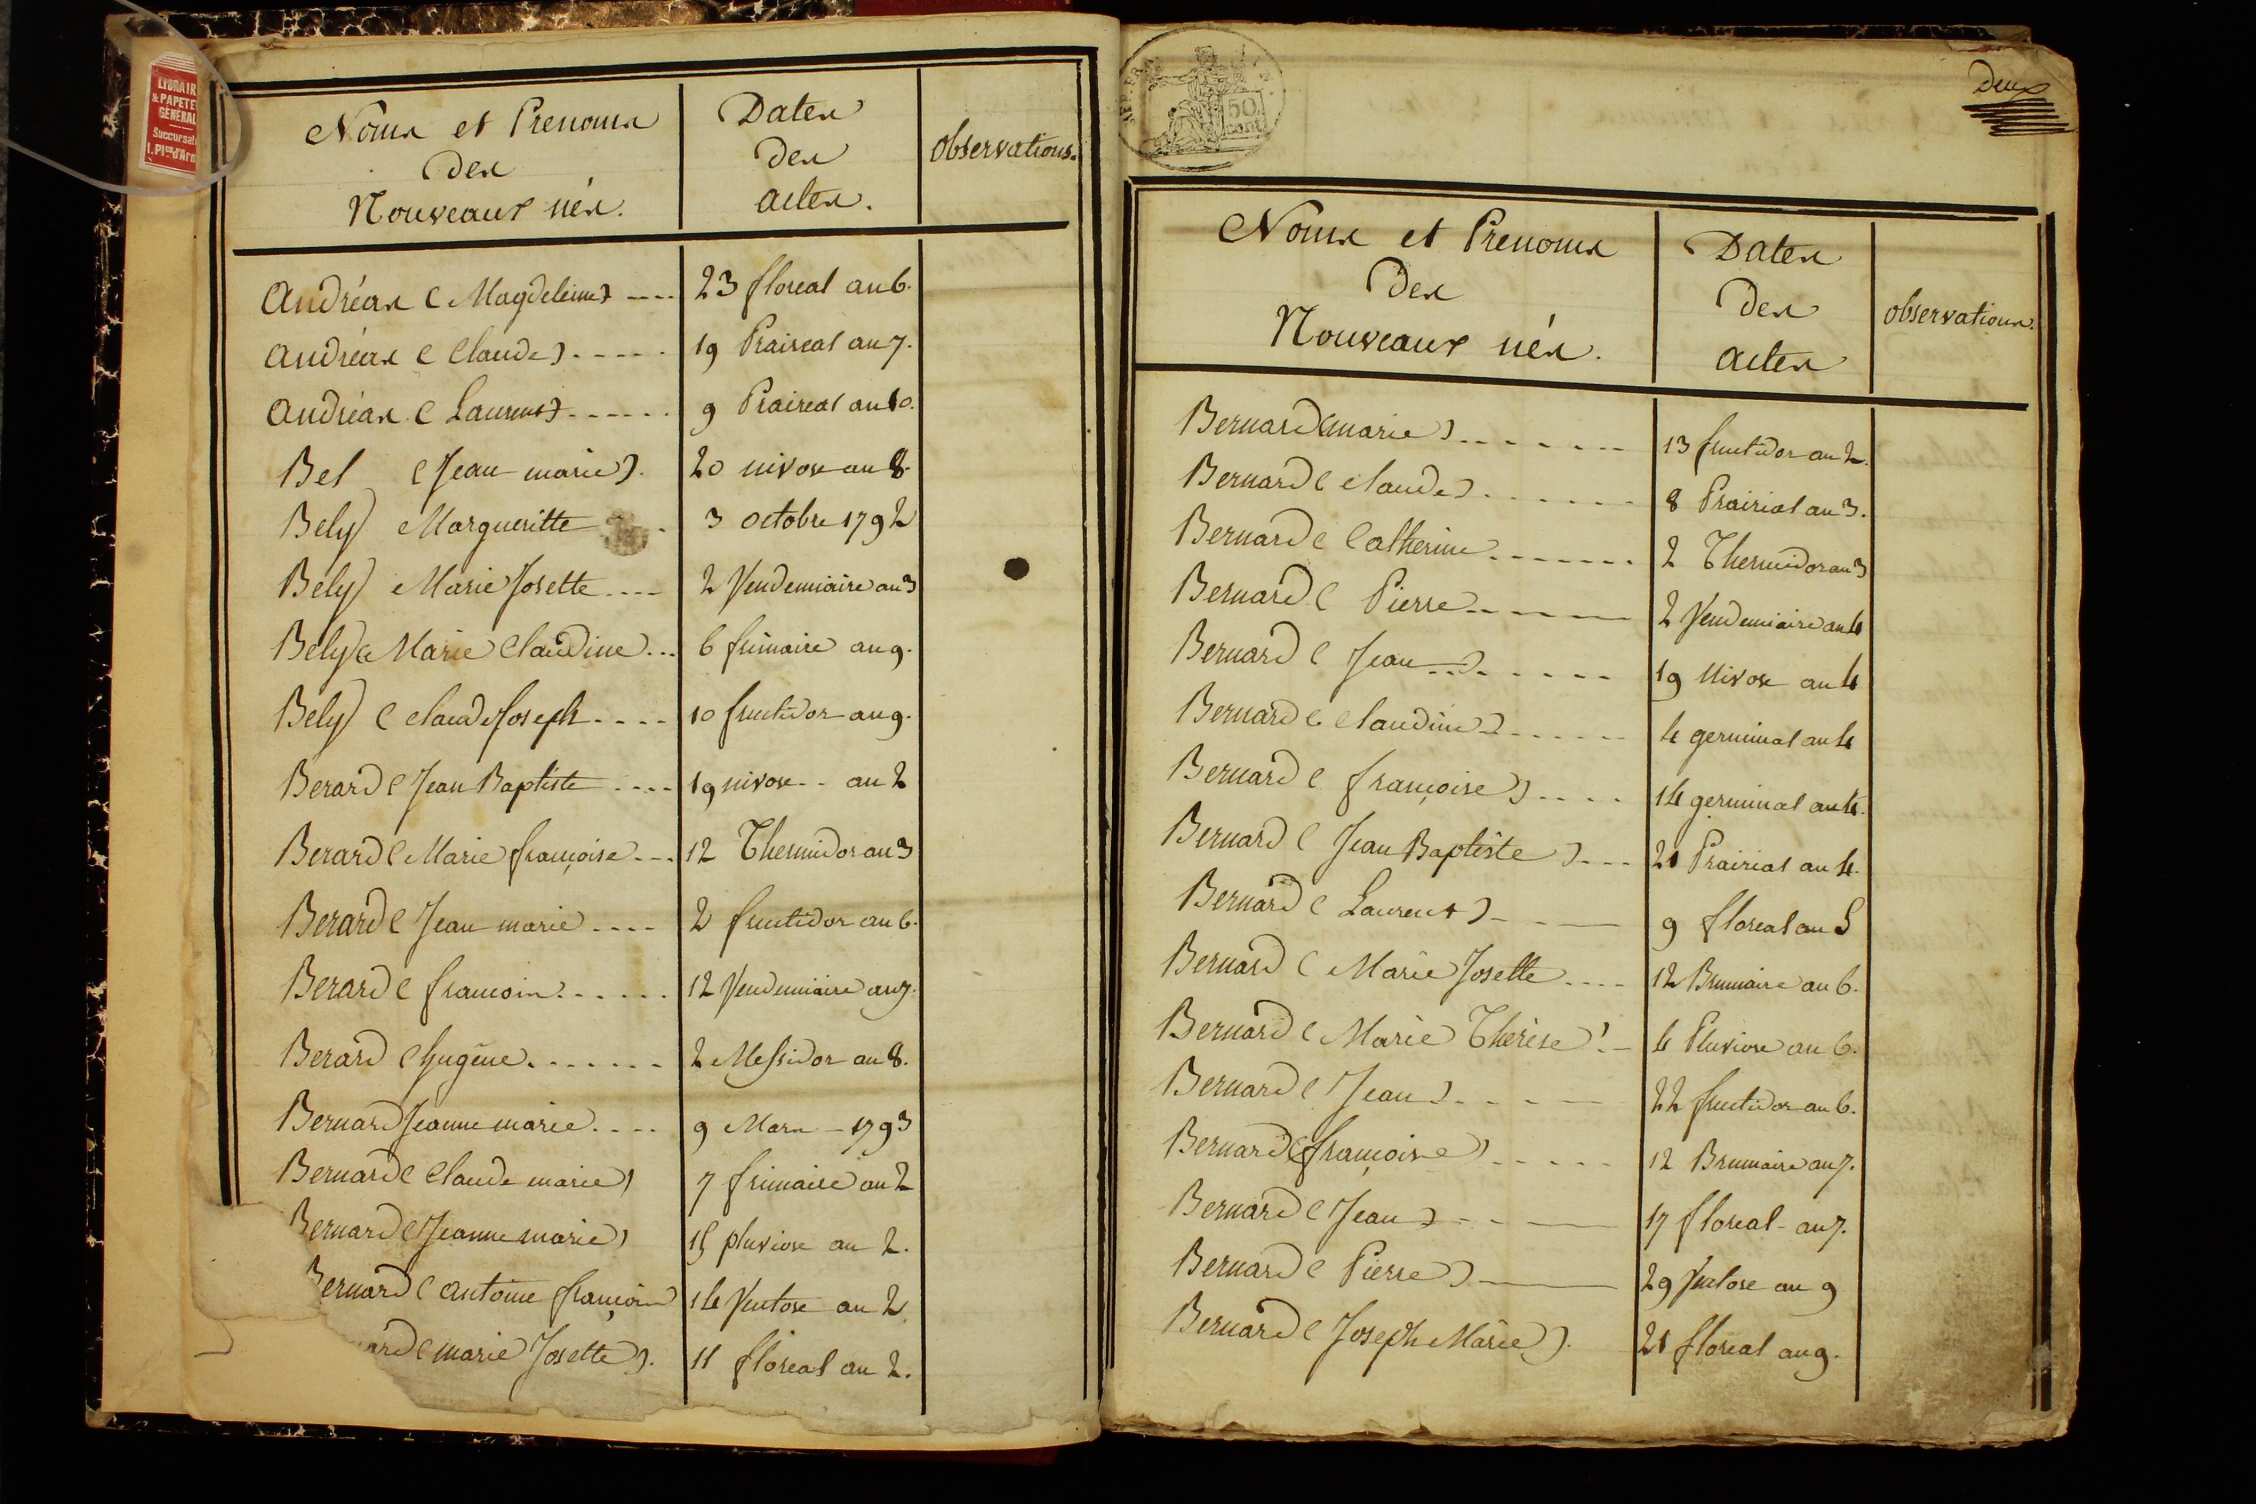 LYBRAIR
& PAPETE
GENERAL
Succursal
1. Pl. d'Arm
Noms et Prenoms
des
Nouveaux nés.
Dates
des
actes.
Observations.
Andréas (Magdeleine) ---- 23 floreal an 6.
Andréas (Claude) ----- 19 Praireal an 7.
Andréas (Laurent) ------ 9 Praireal an 10.
Bel (Jean marie). 20 nivose an 8.
Bely Margueritte - 3 octobre 1792
Bely Marie Josette ---- 2 Vendemiaire an 3
Bely (Marie Claudine --- 6 frimaire an 9.
Bely (Claude Joseph ---- 10 fructidor an 9.
Berard (Jean Baptiste ---- 19 nivose -- an 2
Berard (Marie françoise --- 12 Thermidor an 3
Berard (Jean marie ---- 2 fructidor an 6.
Berard (francois ------ 12 Vendemiaire an 7.
Berard (hugéne ------- 2 Messidor an 8.
Bernard Jeanne marie ---- 9 Mars - 1793
Bernard (Claude marie) 7 frimaire an 2
Bernard (Jeanne marie) 15 pluviose an 2.
Bernard (antoine françois 14 Ventose an 2
ard (marie Josette). 11 floréal an 2.
REP. FRA
50
cent
Deux
Noms et Prenoms
des
Nouveaux nés.
Dates
des
actes
observations.
Bernard (marie) ------- 13 fructidor an 2.
Bernard (Claude) ------- 8 Prairial an 3.
Bernard (Catherine ------- 2 Thermidor an 3
Bernard (Pierre ------ 2 Vendemiaire an 4
Bernard (Jean) ------ 19 Nivose an 4
Bernard (Claudine) ------ 4 germinal an 4
Bernard (françoise) ---- 14 germinal an 4.
Bernard (Jean Baptiste) --- 21 Prairial an 4.
Bernard (Laurent) --- 9 floreal an 5
Bernard (Marie Josette ---- 12 Brumaire an 6.
Bernard (Marie Thérèse) - 4 Pluviose an 6.
Bernard (Jean) ----- 22 fructidor an 6.
Bernard (françoise) ----- 12 Brumaire an 7.
Bernard (Jean) --- 17 floreal - an 7.
Bernard (Pierre) --- 29 Ventose an 9
Bernard (Joseph Marie). 21 floréal an 9.